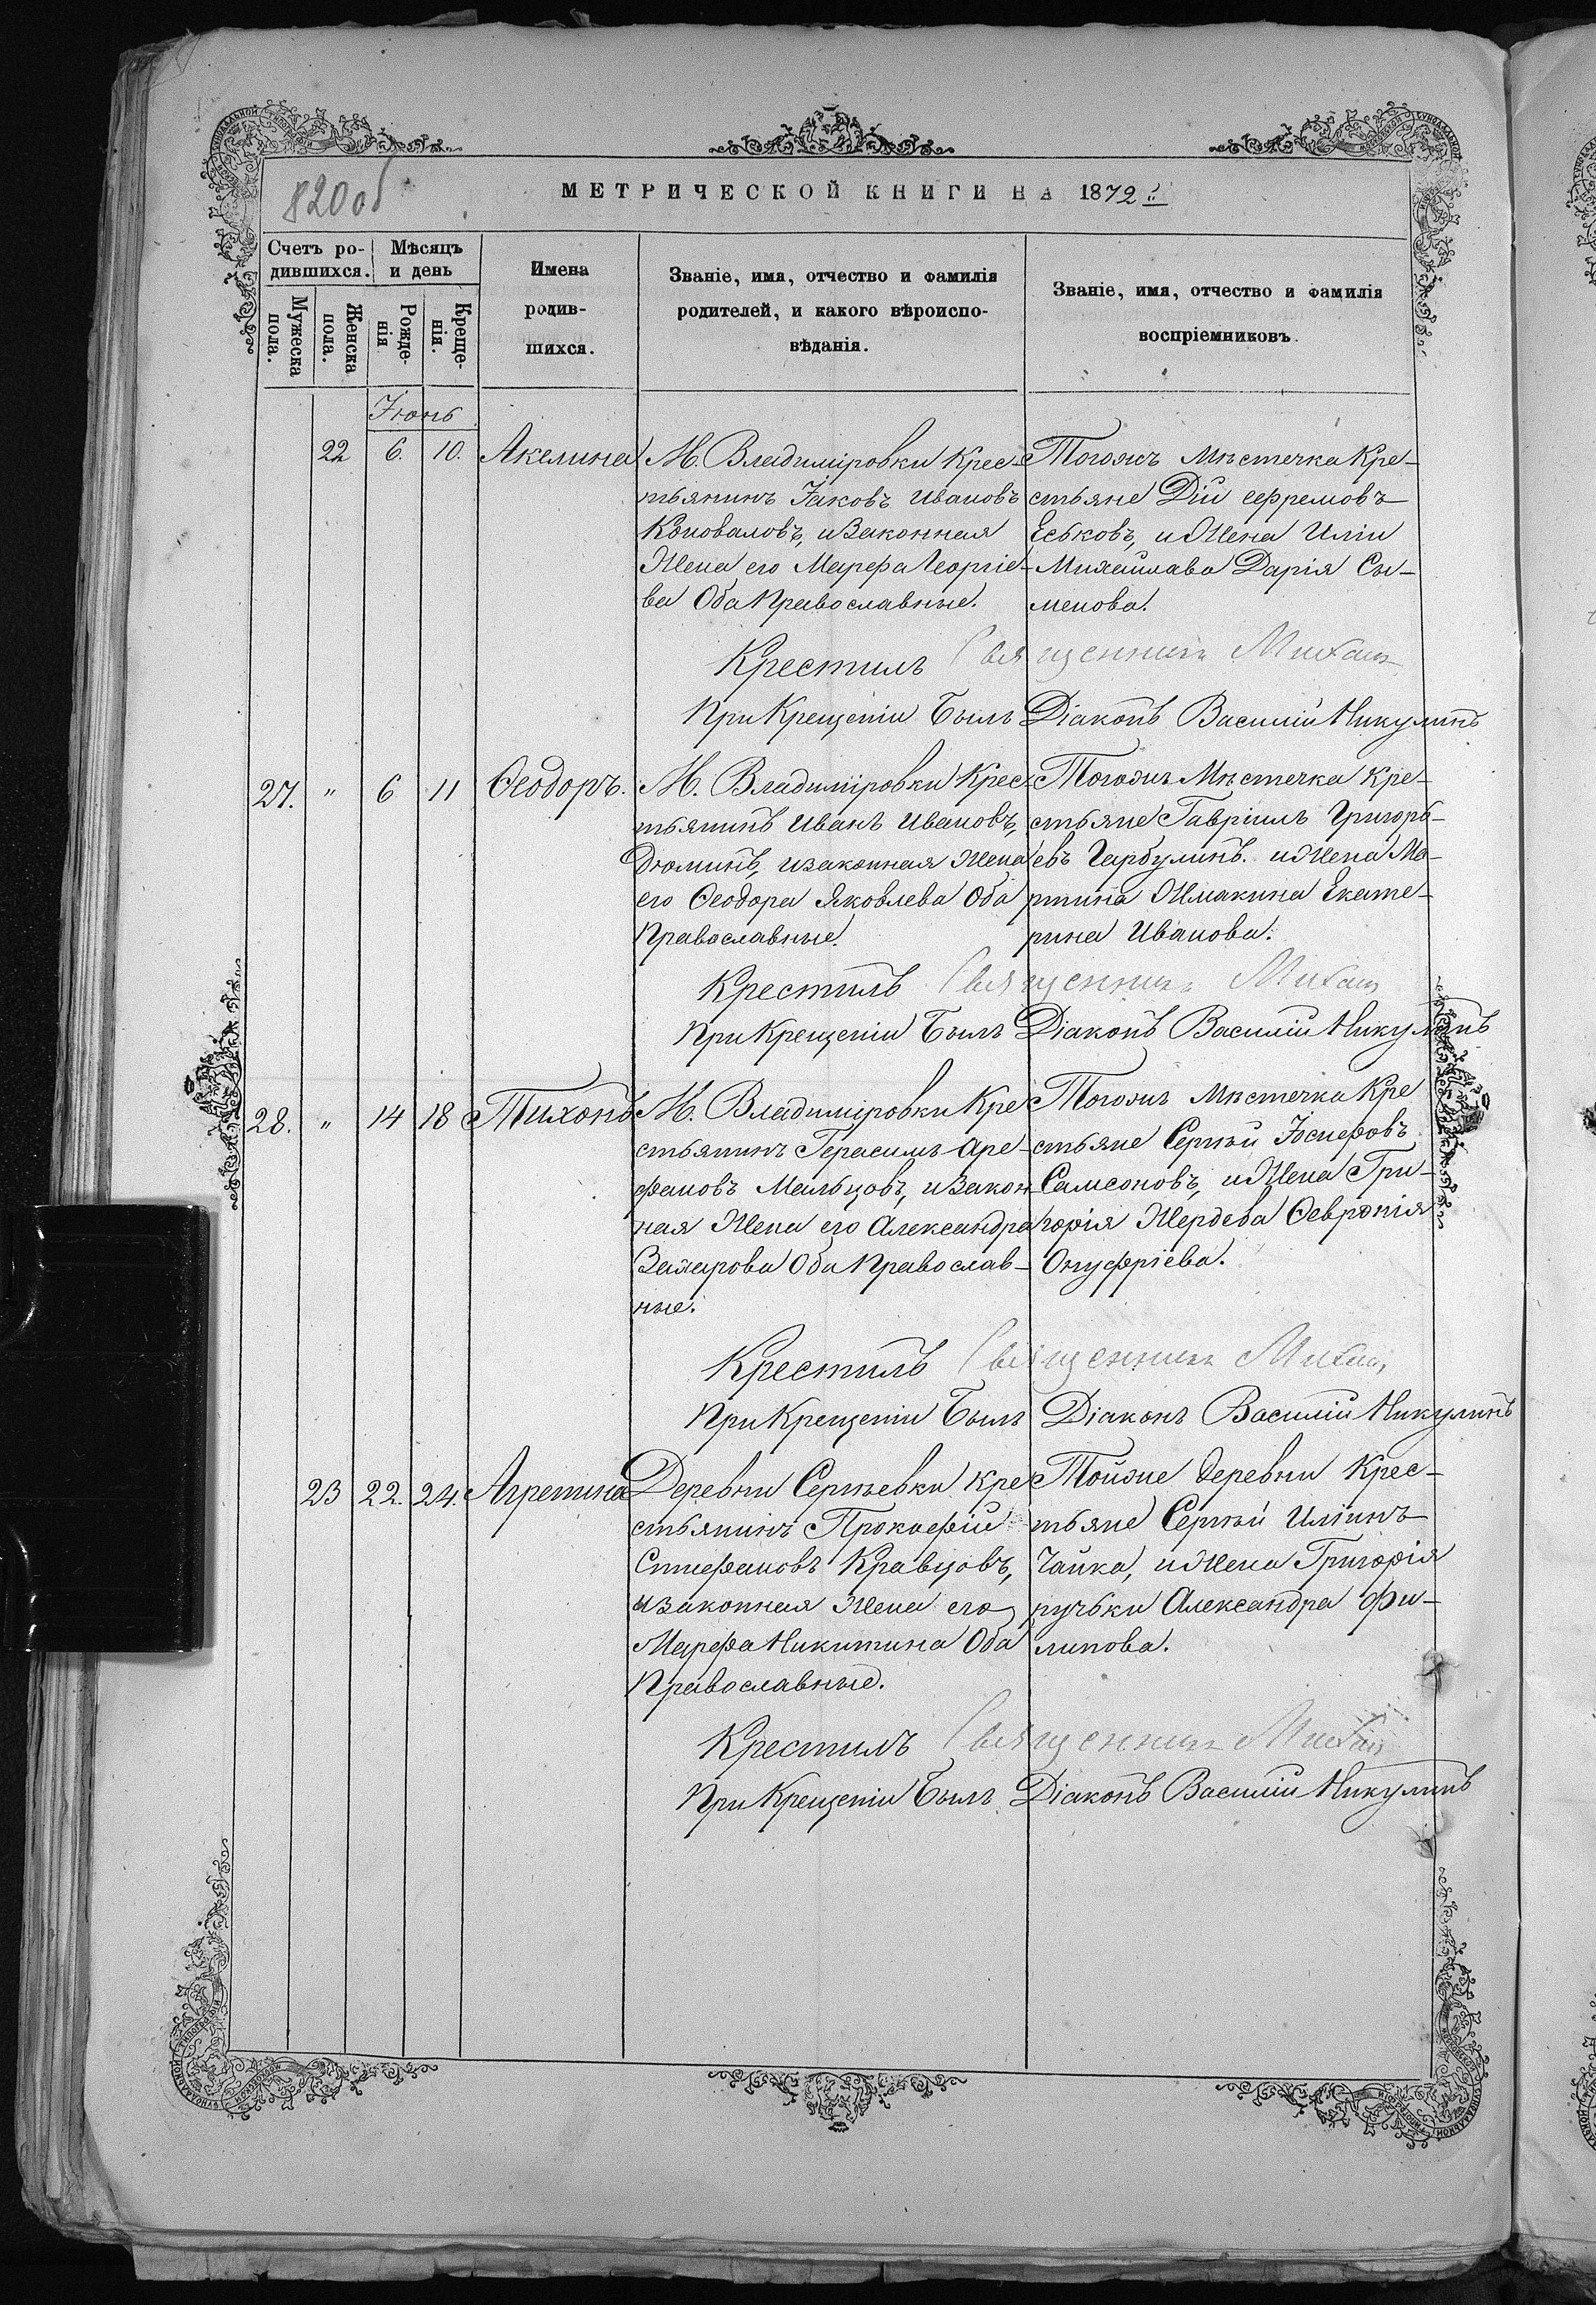 820 об
МЕТРИЧЕСКОЙ КНИГИ НА 1872
Счетъ ро-
дившихся.
Мѣсяцъ
и день
Мужеска
пола.
Женска
пола.
Рожде-
нія
Креще-
нія.
Имена
родив-
шихся.
Званіе, имя, отчество и фамилія
родителей, и какого вѣроиспо-
вѣданія.
Званіе, имя, отчество и фамилія
воспріемниковъ.
Іюнь
22 6. 10. Акелина
М. Владиміровки Крес-
тьянинъ Іаковъ Ивановъ
Коноваловъ, и Законная
Жена его Марфа Георгіе-
ва Оба Православные.
Тогожъ Мѣстечка Кре-
стьяне Дій Ефремовъ
Еськовъ, и Жена Иліи
Михайлава Дарія Сы-
менова.
Крестилъ Священникъ Михаил
При Крещеніи Былъ Діаконъ Василій Никулинъ
27. " 6 11 Ѳеодоръ.
М. Владиміровки Крес-
тьянинъ Иванъ Ивановъ,
Дюминъ, и законная Жена
его Ѳеодора Яковлева Оба
Православные.
Тогожъ Мѣстечка Кре-
стьяне Гавріилъ Григорь-
евъ Гарбулинъ. и Жена Ма-
ртина Жмакина Екате-
рина Иванова.
Крестилъ Священникъ Михаил
При Крещеніи Былъ Діаконъ Василій Никулинъ
28. " 14 18 Тихонъ
М. Владиміровки Кре
стьянинъ Герасимъ Аре-
фановъ Мальцовъ, и Закон-
ная Жена его Александра
Захарова Оба Православ-
ные.
Тогожъ Мѣстечка Кре
стьяне Сергѣй Іосифовъ
Самсоновъ, и Жена Гри-
горія Жердева Ѳевронія
Онуфріева.
Крестилъ Священникъ Михаил
При Крещеніи Былъ Діаконъ Василій Никулинъ
23 22. 24. Агрепина
Деревни Сергѣевки Кре
стьянинъ Прокофій
Стефановъ Кравцовъ,
и законная Жена его
Марфа Никитина Оба
Православные.
Тойже деревни Крес-
тьяне Сергѣй Иліинъ
Чайка, и Жена Григорія
ручьки Александра Фи-
липова.
Крестилъ Священникъ Михаил
При Крещеніи Былъ Діаконъ Василій Никулинъ